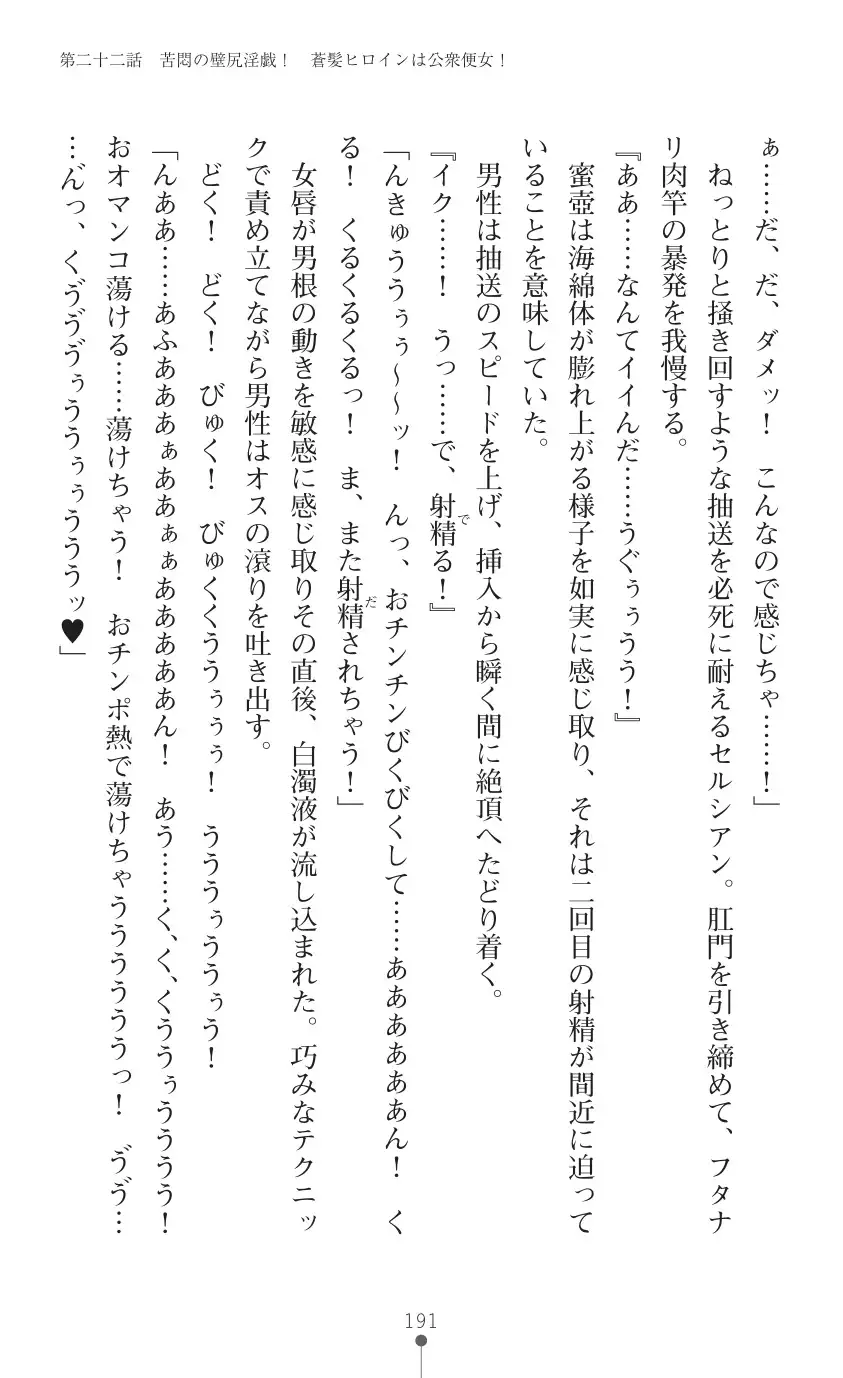 第二十二話　苦悶の壁尻淫戯！　蒼髪ヒロインは公衆便女！
ぁ……だ、だ、ダメッ！　こんなので感じちゃ……！」
　ねっとりと掻き回すような抽送を必死に耐えるセルシアン。肛門を引き締めて、フタナ
リ肉竿の暴発を我慢する。
『ああ……なんてイイんだ……うぐぅぅうう！』
　蜜壺は海綿体が膨れ上がる様子を如実に感じ取り、それは二回目の射精が間近に迫って
いることを意味していた。
　男性は抽送のスピードを上げ、挿入から瞬く間に絶頂へたどり着く。
『イク……！　うっ……で、射精る！』
で
「んきゅううぅぅ～～ッ！　んっ、おチンチンびくびくして……ぁあああああん！　く
る！　くるくるくるっ！　ま、また射精されちゃう！」
だ
　女唇が男根の動きを敏感に感じ取りその直後、白濁液が流し込まれた。巧みなテクニッ
クで責め立てながら男性はオスの滾りを吐き出す。
　どく！　どく！　びゅく！　びゅくくううぅぅぅ！　うううぅううぅう！
「んああ……あふあああぁああぁぁああああああん！　あう……く、く、くううぅうううう！
おオマンコ蕩ける……蕩けちゃう！　おチンポ熱で蕩けちゃうううううっ！　ゔゔ…
…ん゙っ、くゔゔゔぅううぅぅうううッ♥」
191